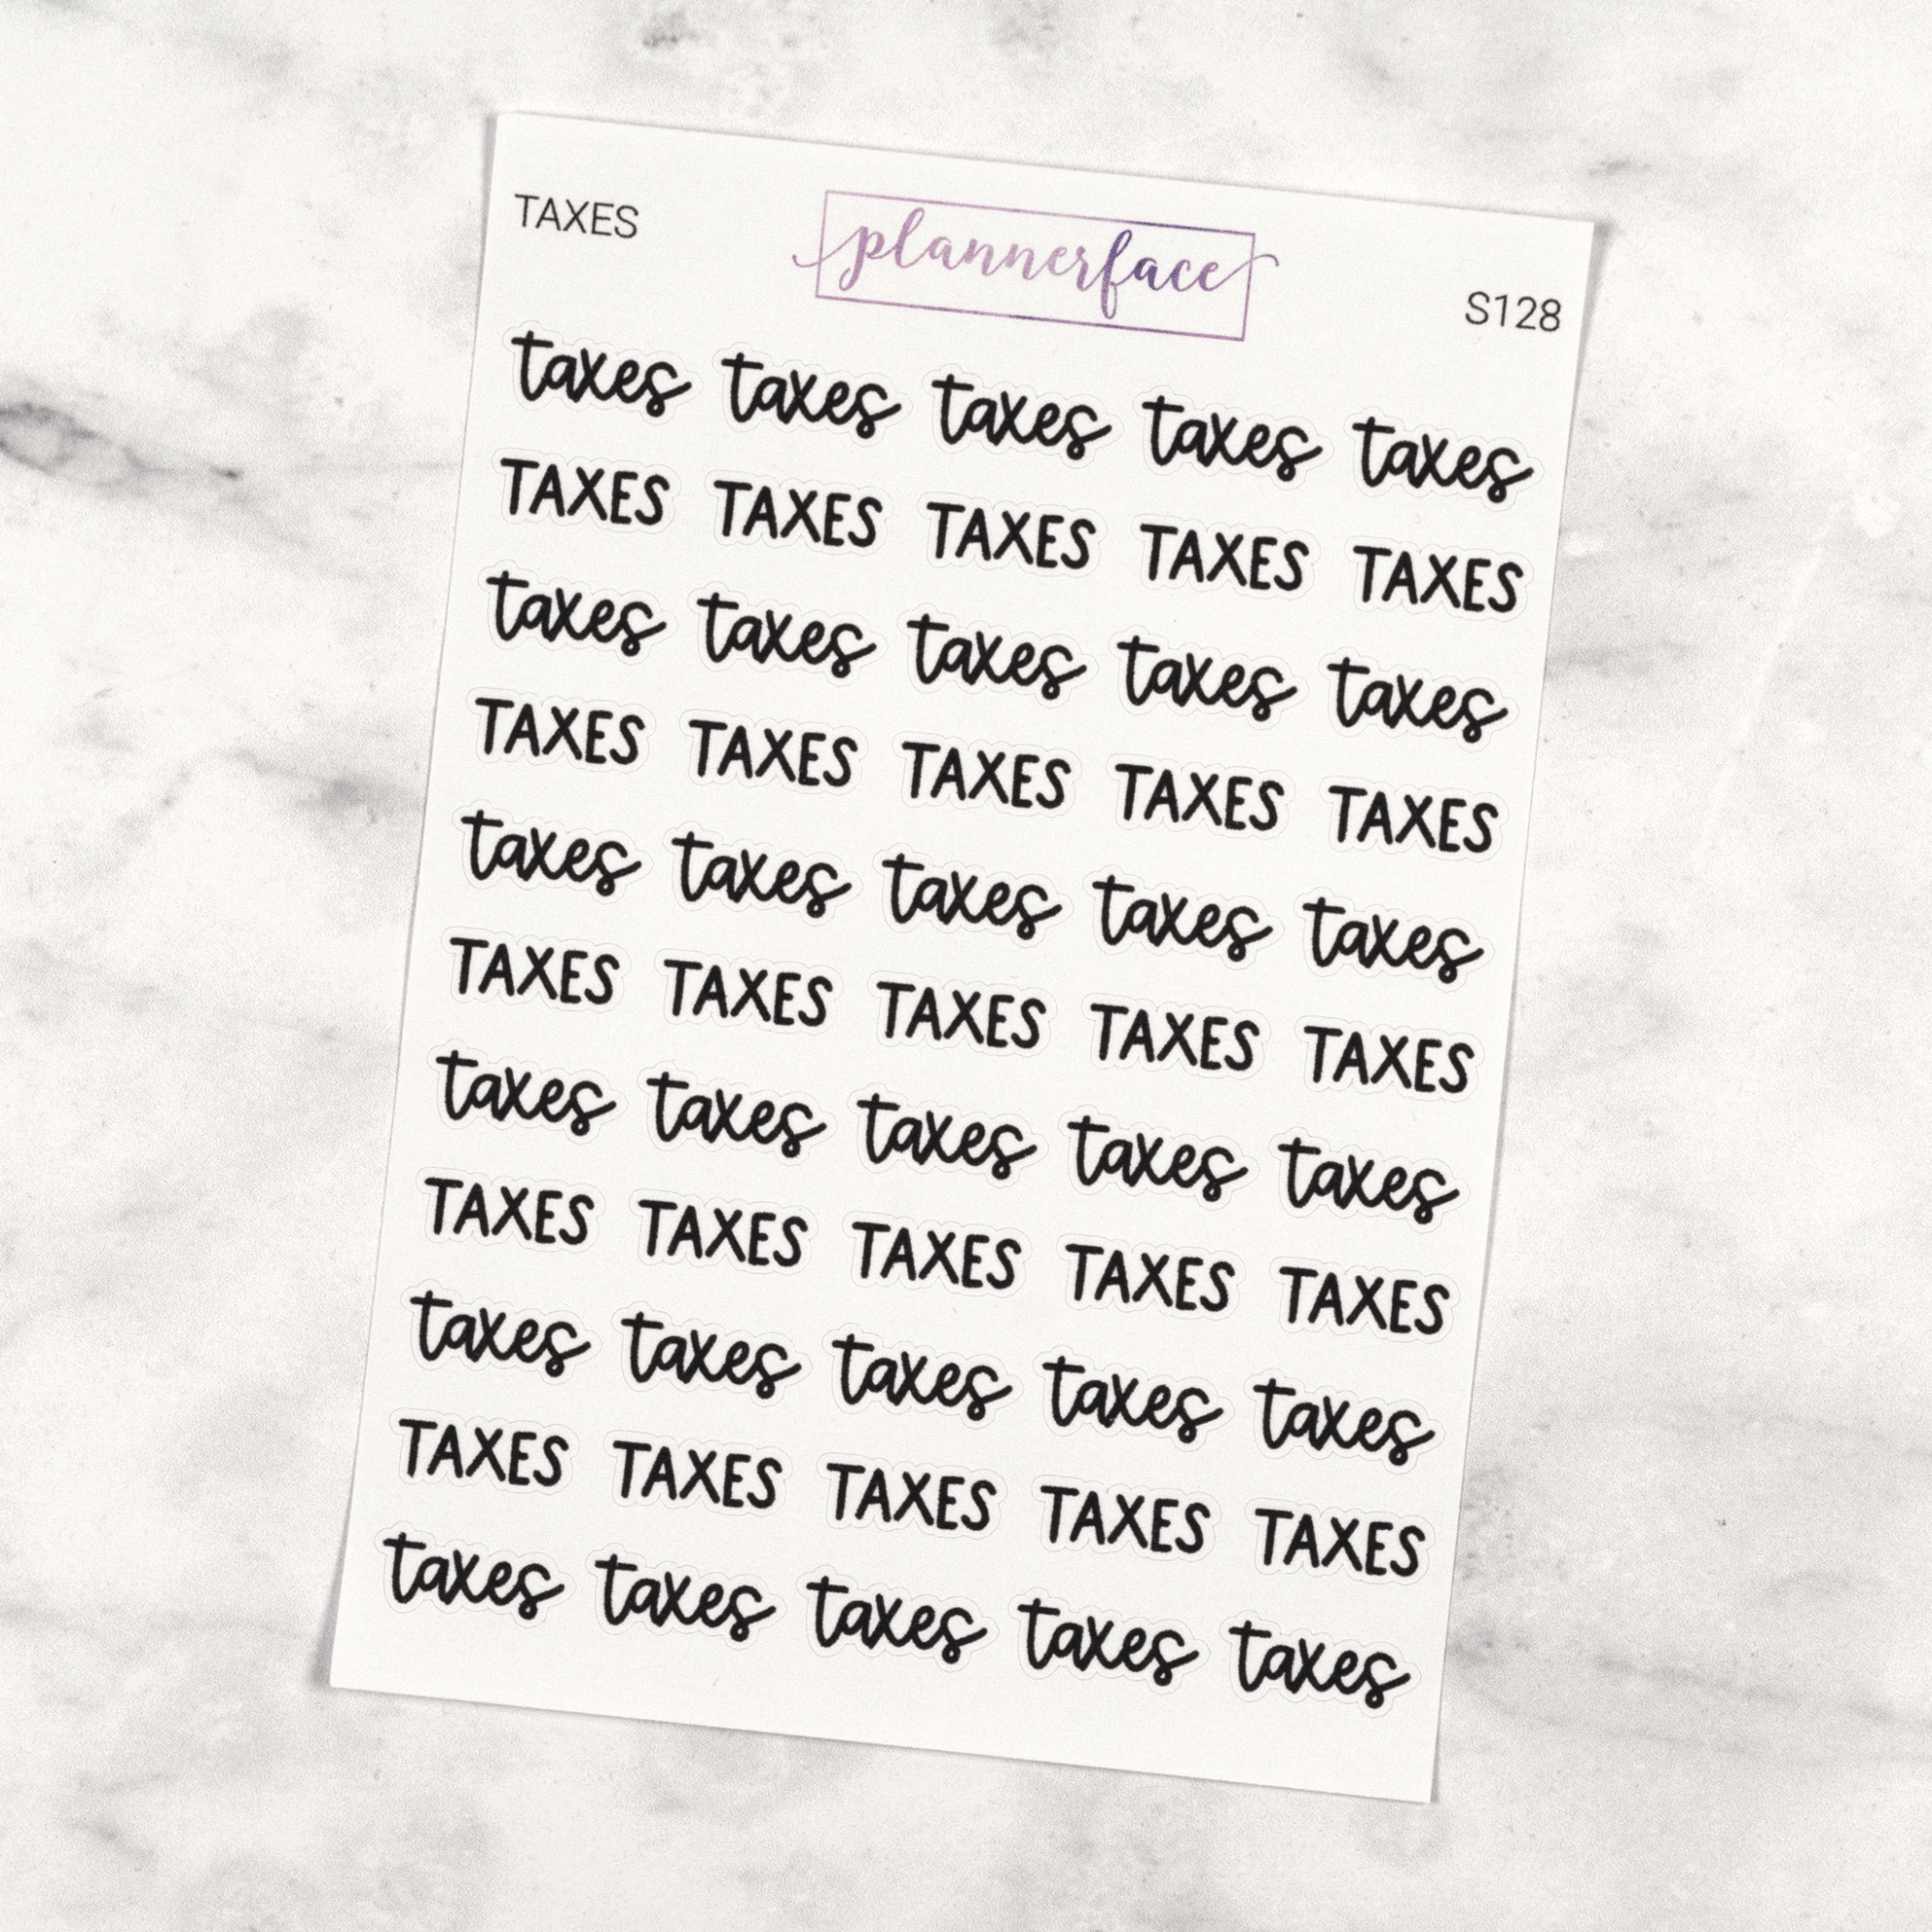 TAXES plannerface S128
taxes taxes taxes taxes taxes
TAXES TAXES TAXES TAXES TAXES
taxes taxes taxes taxes taxes
TAXES TAXES TAXES TAXES TAXES
taxes taxes taxes taxes taxes
TAXES TAXES TAXES TAXES TAXES
taxes taxes taxes taxes taxes
TAXES TAXES TAXES TAXES TAXES
taxes taxes taxes taxes taxes
TAXES TAXES TAXES TAXES TAXES
taxes taxes taxes taxes taxes